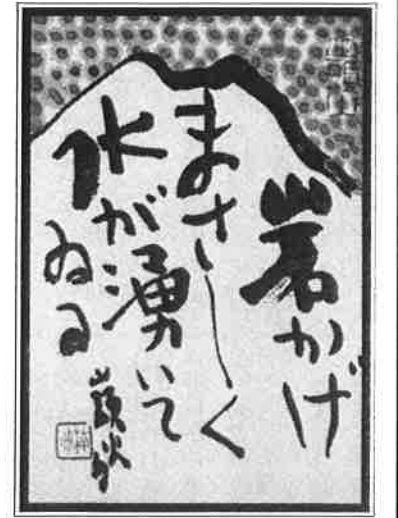 岩かげ
まさしく
水が湧いて
ゐる
山頭火